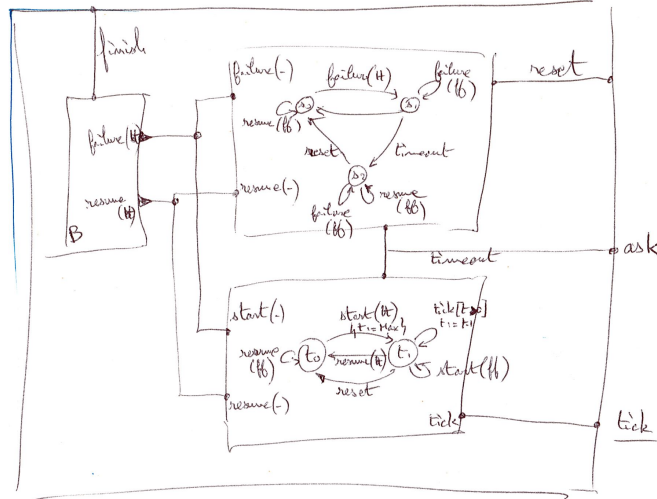 finish
failure(tt)
resume
(tt)
B
failure(-)
failure(tt)
failure
(ff)
s0
s1
resume
(ff)
reset
timeout
s2
failure
(ff)
resume
(ff)
resume(-)
reset
timeout
ask
start(-)
start(tt)
{t:=Max}
tick[t>0]
t:=t-1
resume
(ff)
t0
resume(tt)
t1
start(ff)
reset
resume(-)
tick
tick